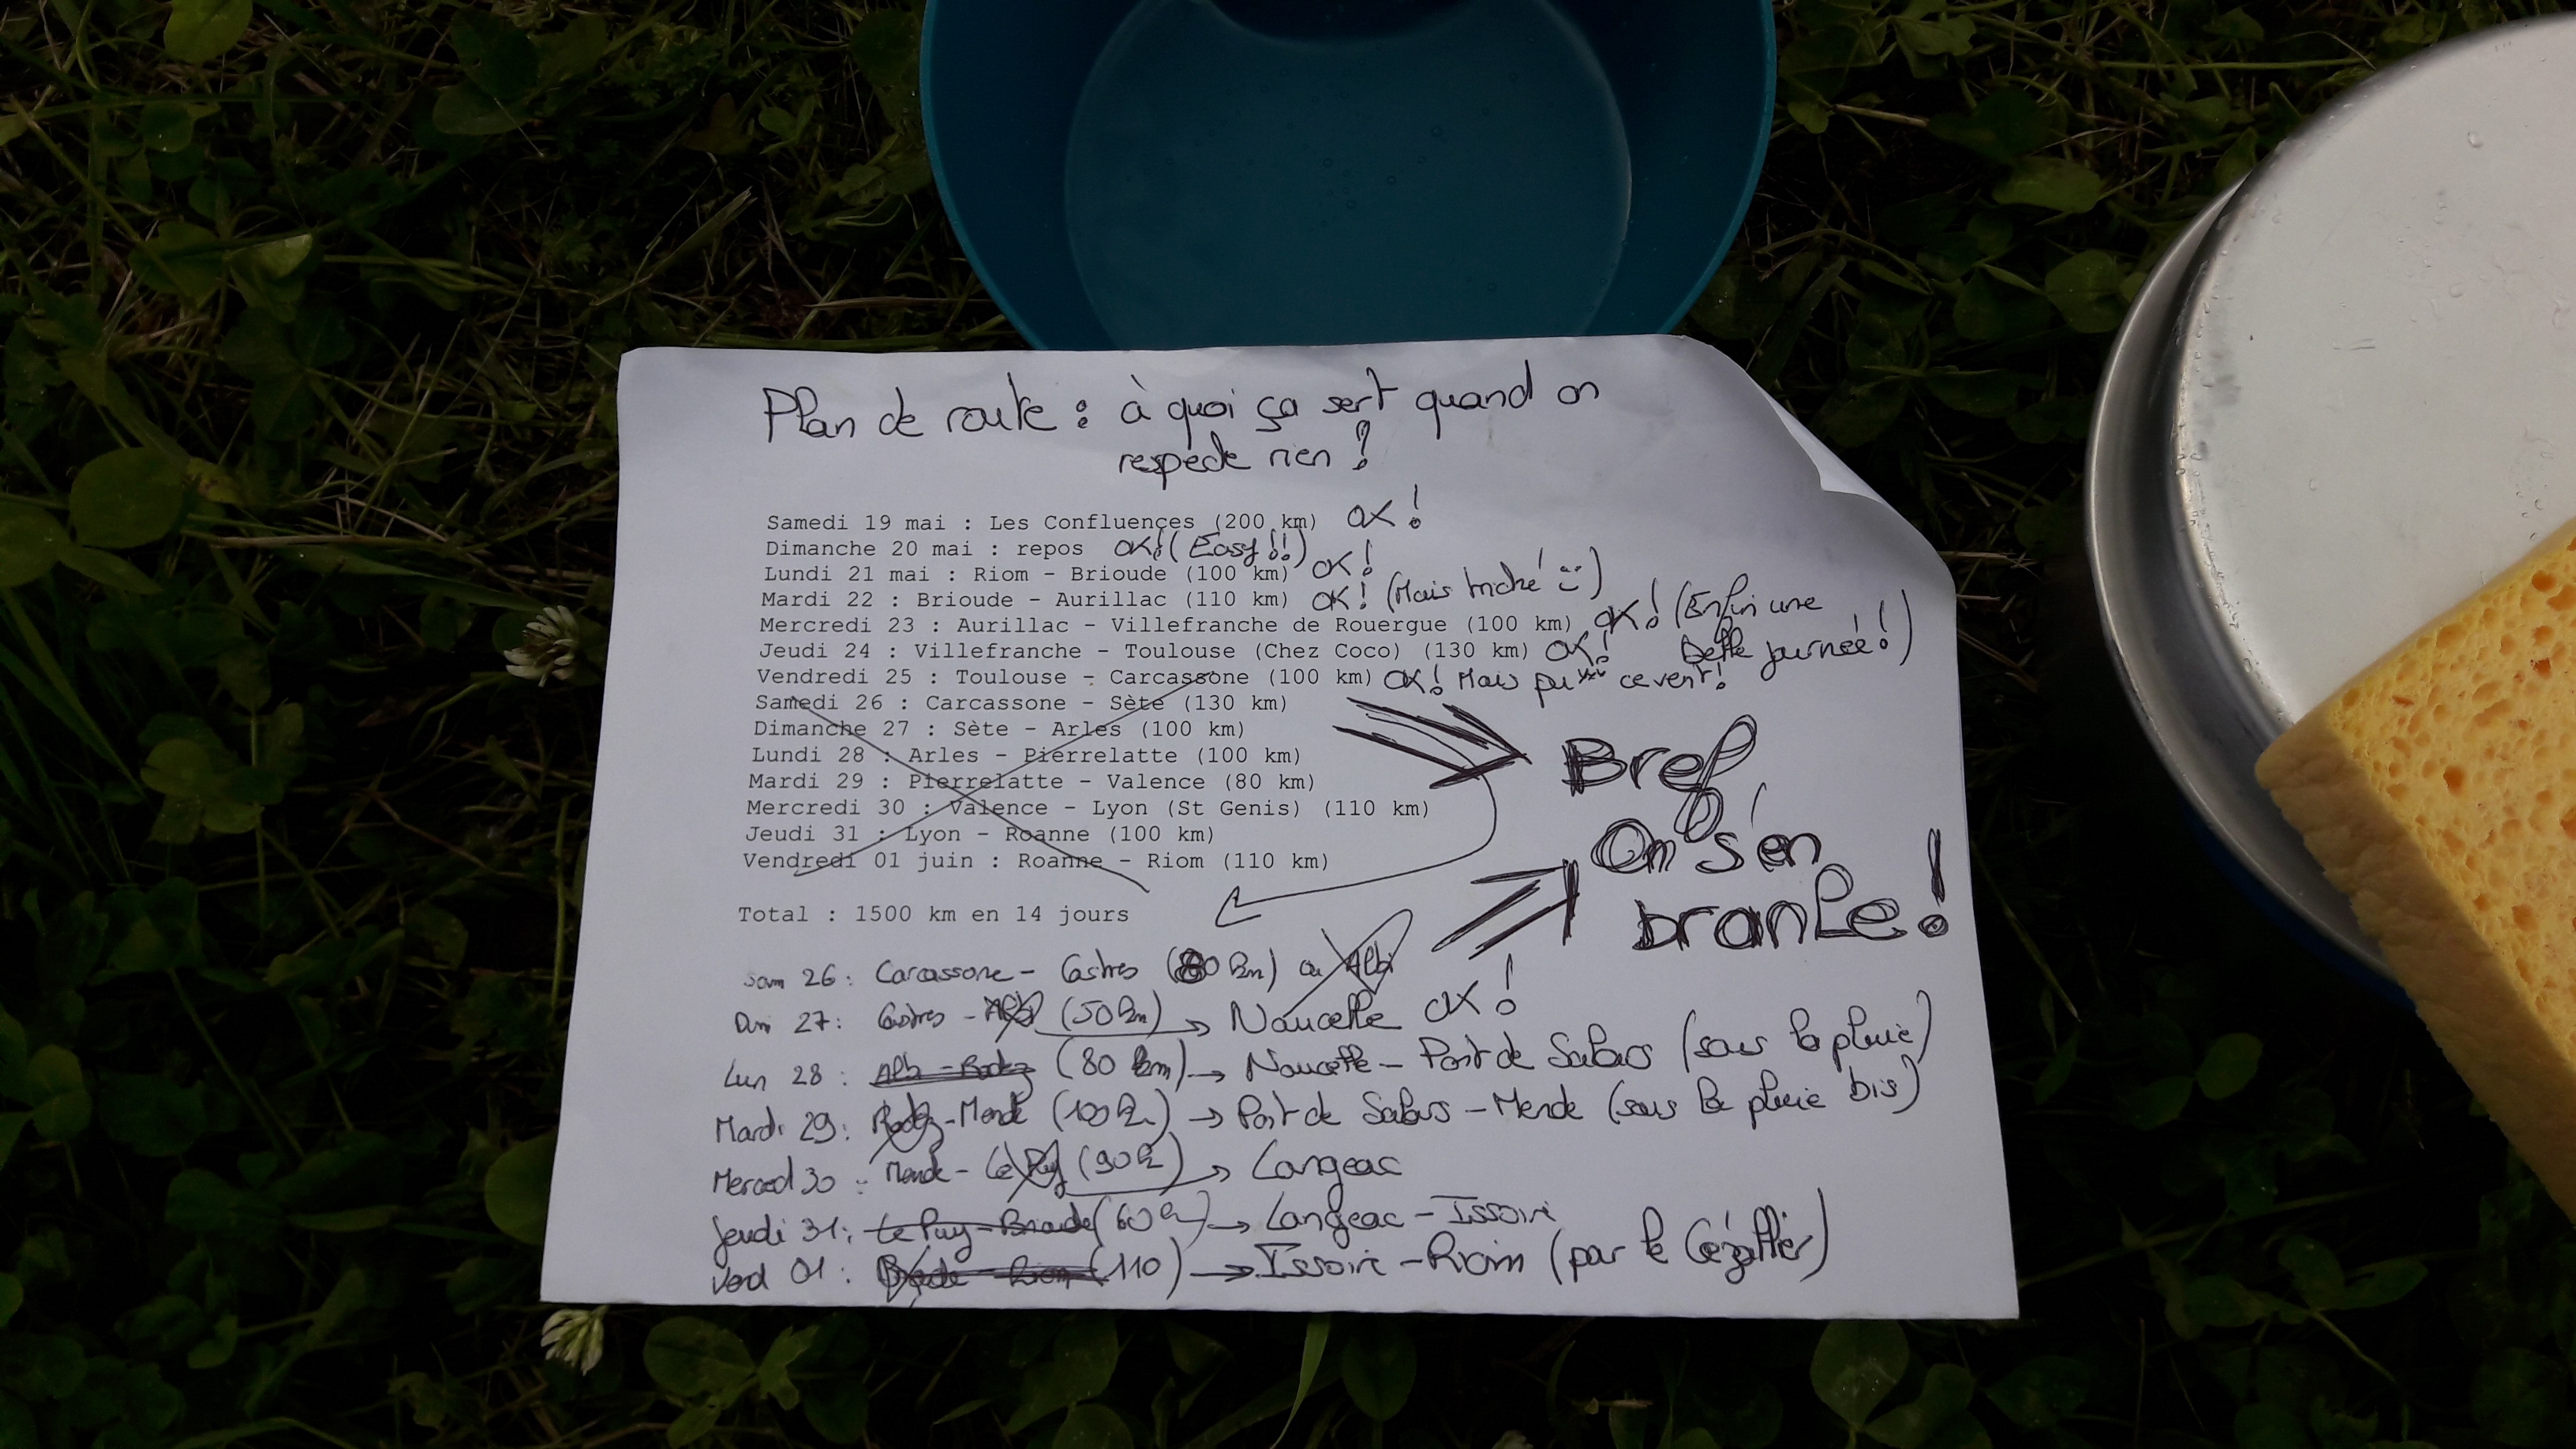 Plan de route : à quoi ça sert quand on
respecte rien !
Samedi 19 mai : Les Confluences (200 km) OK !
Dimanche 20 mai : repos OK ! (Easy !!)
Lundi 21 mai : Riom - Brioude (100 km) OK !
Mardi 22 : Brioude - Aurillac (110 km) OK ! (Mais triché !)
Mercredi 23 : Aurillac - Villefranche de Rouergue (100 km) OK ! (Enfin une
belle journée !)
Jeudi 24 : Villefranche - Toulouse (Chez Coco) (130 km) OK !
Vendredi 25 : Toulouse - Carcassone (100 km) OK ! Mais pu*** ce vent !
Samedi 26 : Carcassone - Sète (130 km)
Dimanche 27 : Sète - Arles (100 km)
Lundi 28 : Arles - Pierrelatte (100 km)
Mardi 29 : Pierrelatte - Valence (80 km)
Mercredi 30 : Valence - Lyon (St Genis) (110 km)
Jeudi 31 : Lyon - Roanne (100 km)
Vendredi 01 juin : Roanne - Riom (110 km)
Bref
On s'en
branle !
Total : 1500 km en 14 jours
Sam 26 : Carcassone - Castres (80 km) ou Albi
Dim 27 : Castres - Albi (50 km) → Naucelle OK !
Lun 28 : Albi - Rodez (80 km) → Naucelle - Pont de Salars (sous la pluie)
Mardi 29 : Rodez - Mende (100 km) → Pont de Salars - Mende (sous la pluie bis)
Mercred 30 : Mende - Le Puy (90 k) → Langeac
Jeudi 31 : Le Puy - Brioude (60 k) → Langeac - Issoire
Vend 01 : Brioude - Riom (110) → Issoire - Riom (par le Cézallier)